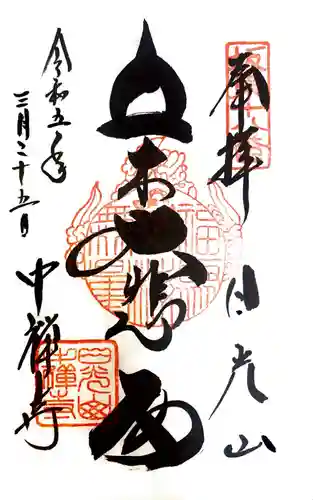 奉拝 日光山
立木大悲殿
令和五年
三月二十五日
中禅寺